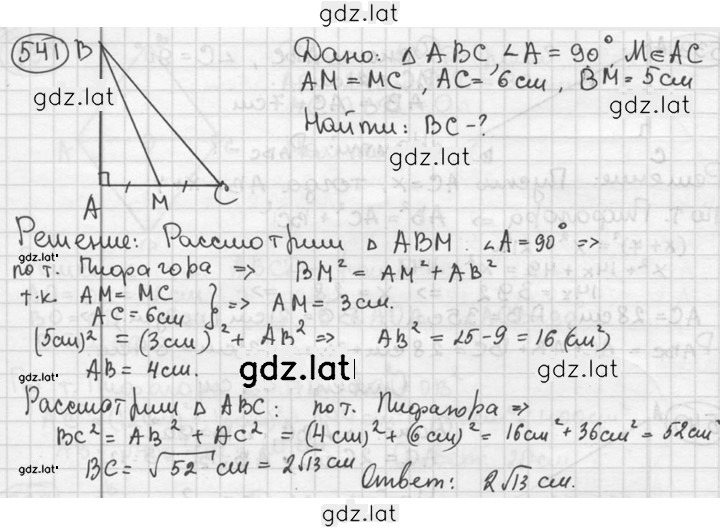 gdz.lat
541 B Дано: Δ ABC, ∠A = 90°, M∈AC
gdz.lat AM = MC, AC = 6см, BM = 5см
Найти: BC - ?
gdz.lat
A M C
Решение: Рассмотрим Δ ABM. ∠A = 90° =>
gdz.lat
по т. Пифагора => BM² = AM² + AB²
т.к. AM = MC
AC = 6см } => AM = 3см.
(5см)² = (3см)² + AB² => AB² = 25 - 9 = 16 (см²)
AB = 4см. gdz.lat gdz.lat
gdz.lat
Рассмотрим Δ ABC: по т. Пифагора =>
BC² = AB² + AC² = (4см)² + (6см)² = 16см² + 36см² = 52см²
gdz.lat
BC = √52 см = 2√13 см
Ответ: 2√13 см.
gdz.lat